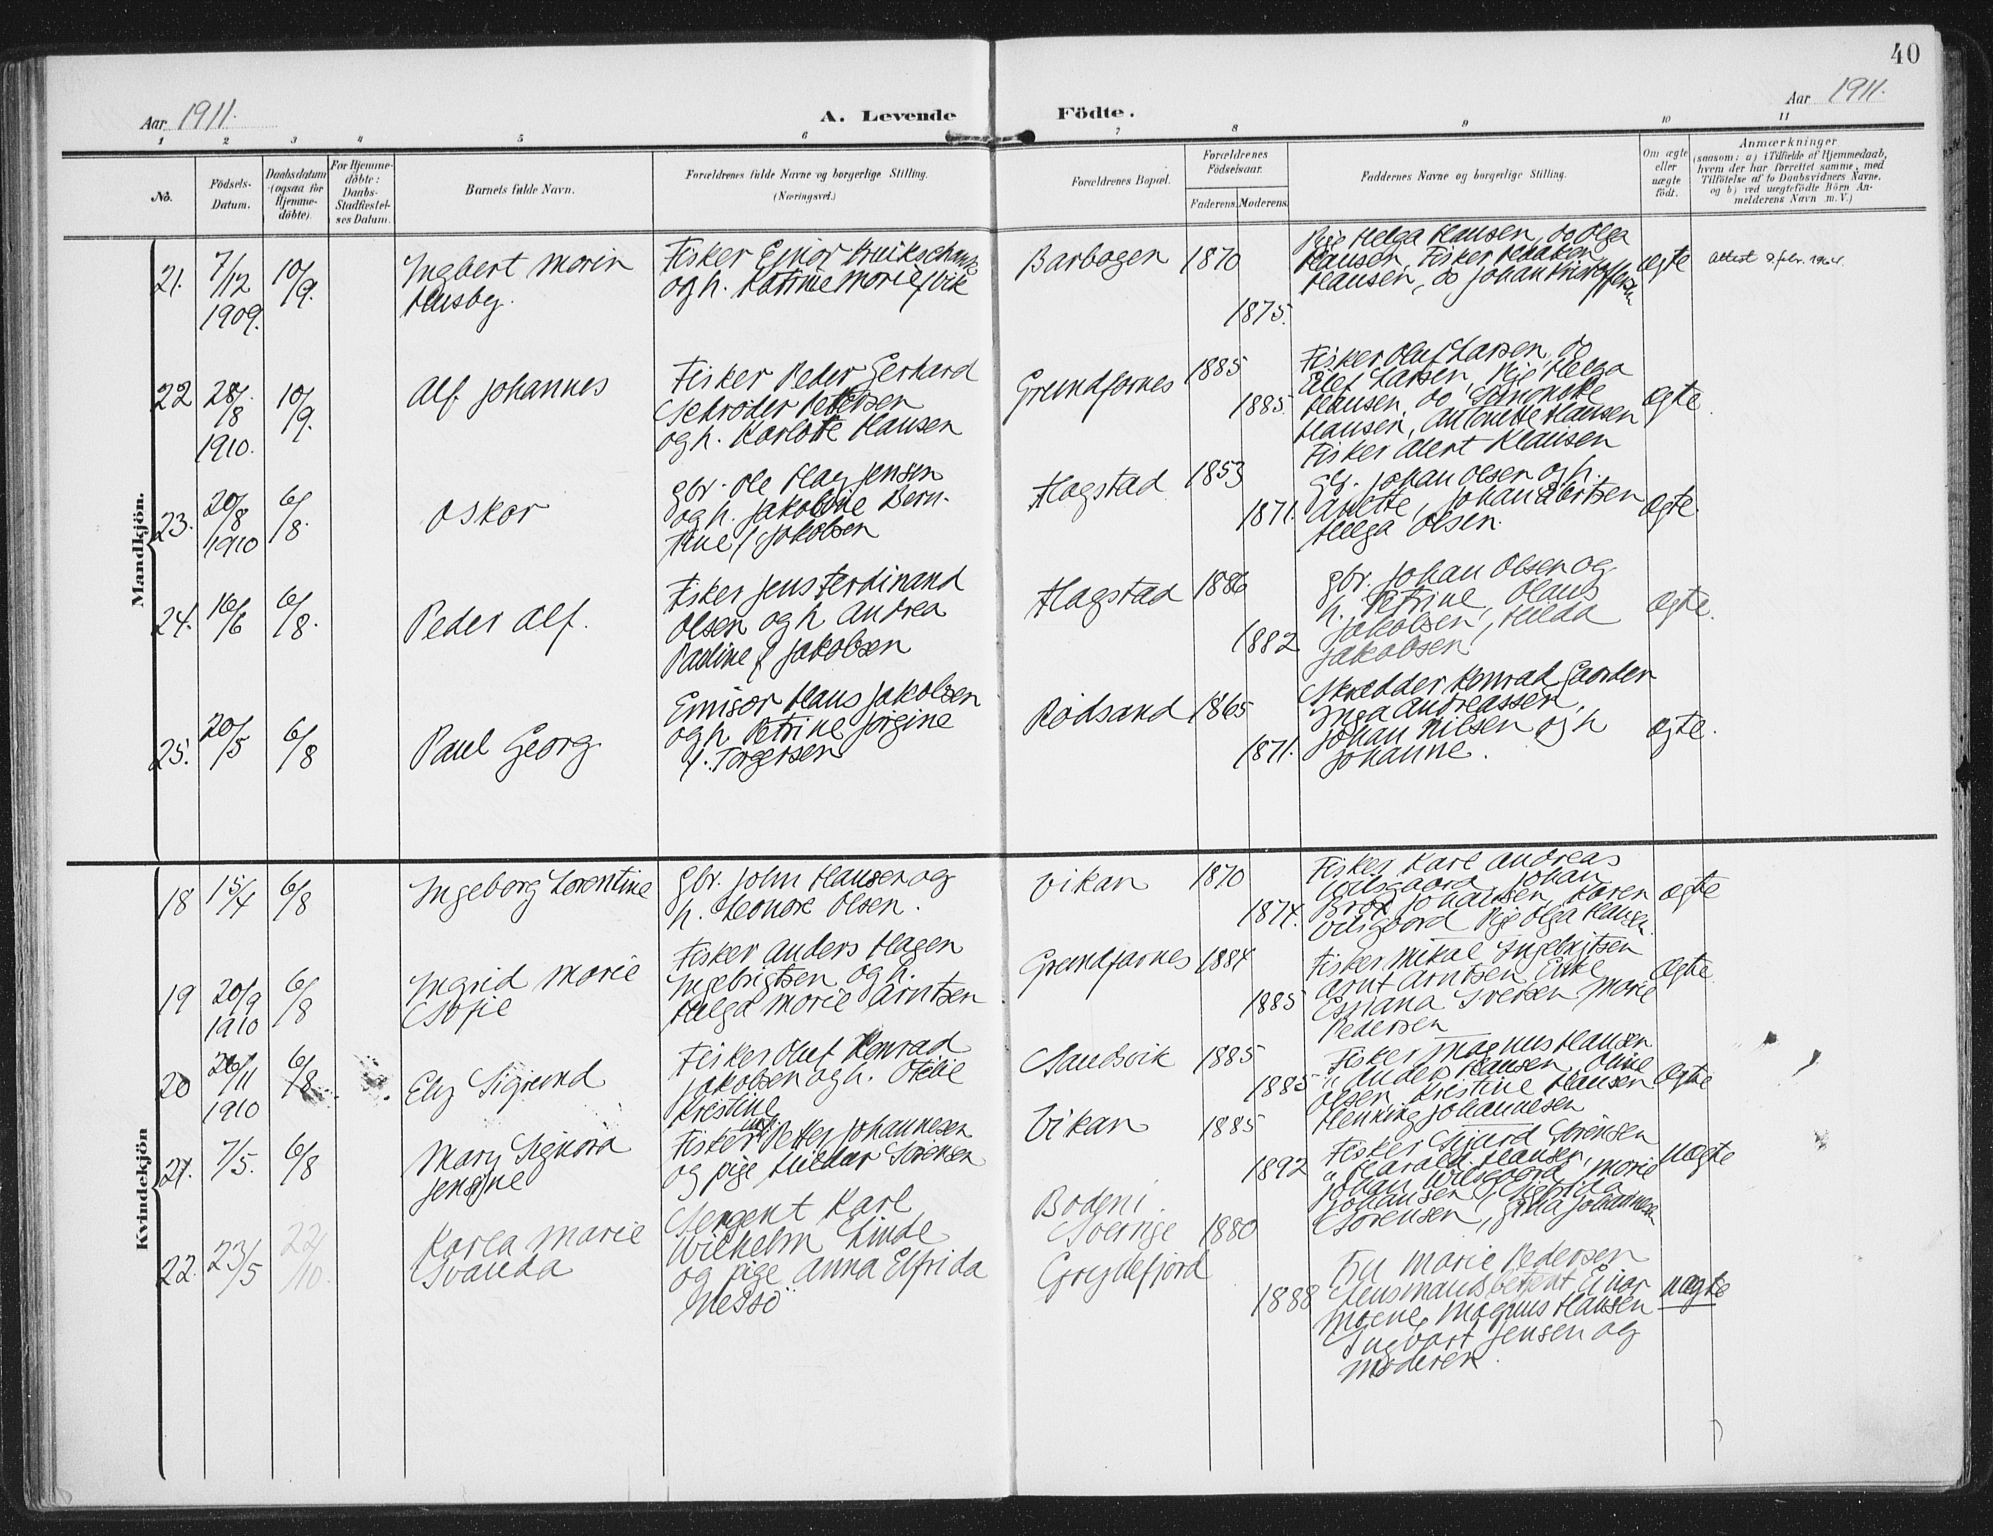 40
Aar 1911.
A. Levende Födte.
Aar 1911.
1 2 3 4 5 6 7 8 9 10 11
No.
Födsels-Datum.
Daabsdatum (ogsaa for Hjemme-döbte).
For Hjemme-döbte: Daabs-Stadfæstel-ses Datum.
Barnets fulde Navn.
Forældrenes fulde Navne og borgerlige Stilling.
(Næringsvei.)
Forældrenes Bopæl.
Forældrenes Födselsaar.
Faderens. Moderens.
Faddernes Navne og borgerlige Stilling.
Om ægte eller uægte födt.
Anmærkninger
(saasom: a) i Tilfælde af Hjemmedaab,
hvem der har forrettet samme, med
Tilföielse af to Daabsvidners Navne,
og b) ved uægtefödte Börn An-
melderens Navn m. V.)
Mandkjön.
21. 7/12 1909. 10/9.
Ingbert Morin
Husby.
Fisker Ejnor
og h. Katrine Marie f Vik
Barbogen 1870
1875.
Pige Helga Hansen, do Olga
Hansen, Fisker Haakon
Hansen, do Johan Kristoffersen
ægte
Attest
22 28/8 1910. 10/9.
Alf Johannes
Fisker Peder Gerhard
Schrøder Petersen
og h. Karlotte Hansen
Grundfarnes 1885
1885.
Fisker Oluf Larsen, do
Elef Larsen, Pige Helga
Hansen, do Simonette
Hansen, Antonette Hansen
Fisker Alert Klausen
ægte.
23. 20/8 1910 6/8.
Oskar
Gbr. Ole Hag Jensen
og h. Jakobine Bern-
tine f. Jakobsen
Hagstad 1853
1871.
Gbr. Johan Olsen og h.
Anette, Johan Albertsen
Helga Olsen.
ægte.
24. 16/6 6/8.
Peder Alf.
Fisker Jens Ferdinand
Olsen og h Andrea
Pauline f Jakobsen
Hagstad 1886
1882
gbr. Johan Olsen og
h. Petrine, Olaus
Jakobsen, Hilda
Jakobsen
ægte.
25. 20/5 6/8
Paul Georg
Emisær Hans Jakobsen
og h Petrine Jørgine
f. Torgersen
Rødsand 1865
1871.
Skrædder Konrad Gaarder
Inga Andreassen,
Johan Nilsen og h
Johanne.
ægte.
Kvindekjön
18 15/4 6/8
Ingeborg Lorentine
Gbr. John Hansen og
h. Leonore Olsen.
Vikan 1870
1874.
Fisker Karl Andreas
Vilsgaard, Johan
Brox Johansen, Karen
Vilsgaard Pige Olga Hansen.
ægte
19 20/9 1910 6/8
Ingrid Marie
Sofie
Fisker Anders Hagen
Ingebrigtsen og h.
Helga Marie Arntsen
Grundfarnes 1884
1885
Fisker Mikal Ingebrigtsen
Arnt Arntsen, Enke
Esmana Iversen, Marie
Pedersen
ægte.
20 26/11 1910 6/8
Ely Sigrund
Fisker Oluf Konrad
Jakobsen og h. Otelie
Kristine
Sandsvik 1885
1885
Fisker Magnus Hansen
" Anders Hansen, Oline
Olsen, Kristine Hansen
Henning Johannesen
ægte
21. 7/5. 6/8
Mary Signora
Jensine
Fisker Petter Johannesen
og pige Sørensen
Vikan 1885
1892
Fisker Sjurd Sørensen
" Harald Hansen,
Johan Vilsgaard, Marie
Johansen,
Sørensen, Johannesen
uægte
22. 23/5 22/10.
Karla Marie
Svanda
Sergent Karl
Wilhelm Linde
og pige Anna Elfrida
Nessö
Bodeni
Sverige 1880
Gryllefjord
1888
Fru Marie Pedersen
Lensmandsbetjent Einar
Moene, Magnus Hansen
Ingvart Jensen og
Moderen.
uægte